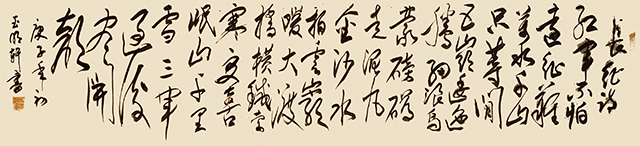 長征诗
红军不怕
遠征難
万水千山
只等闲
五岭逶迤
腾细浪乌
蒙磅礴
走泥丸
金沙水
拍雲崖
暖大渡
桥横铁索
寒更喜
岷山千里
雪三军
过後
尽開
颜
庚子年初
书